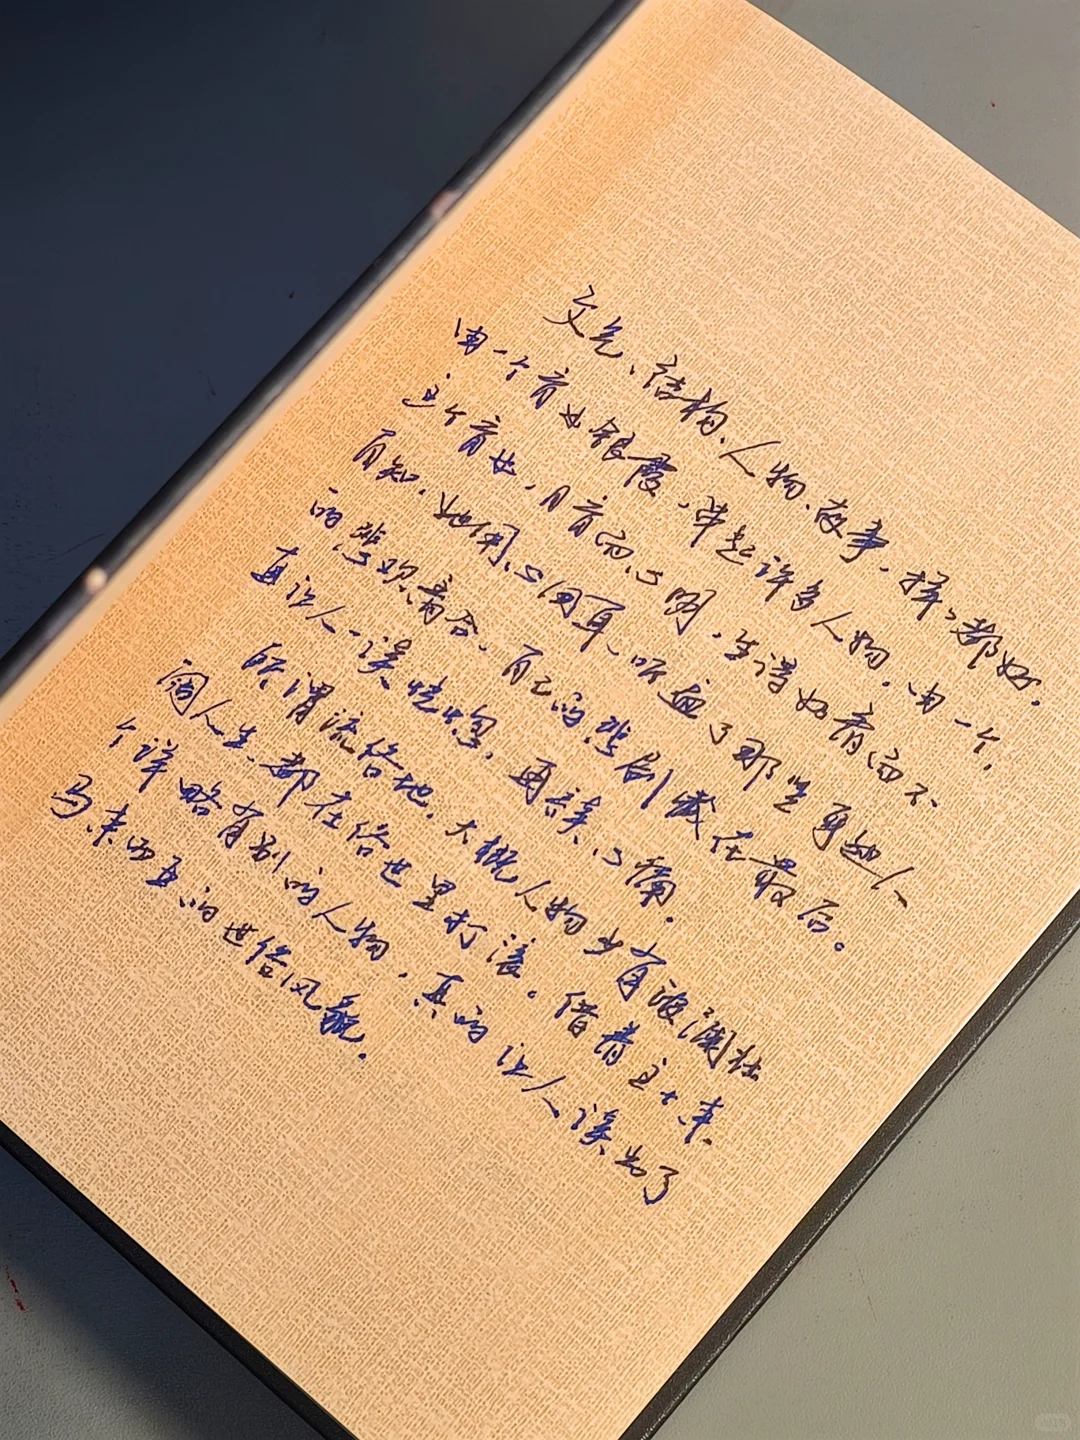 文气、结构、人物、故事,择之都好。
由一个盲女银霞,牵起许多人物。由一个
这个盲女,目盲而心明,生得好看而不
自知。她用心间耳,听遍了那些身边人
的悲欢离合,自己的悲剧藏在最后。
直让人一读恍惚,再读心痛。
所谓流俗地,大概人物少有波澜壮
阔人生,都在俗世里打滚。借着这十来
个详略有别的人物,真的让人读出了
马来西亚的世俗风貌。